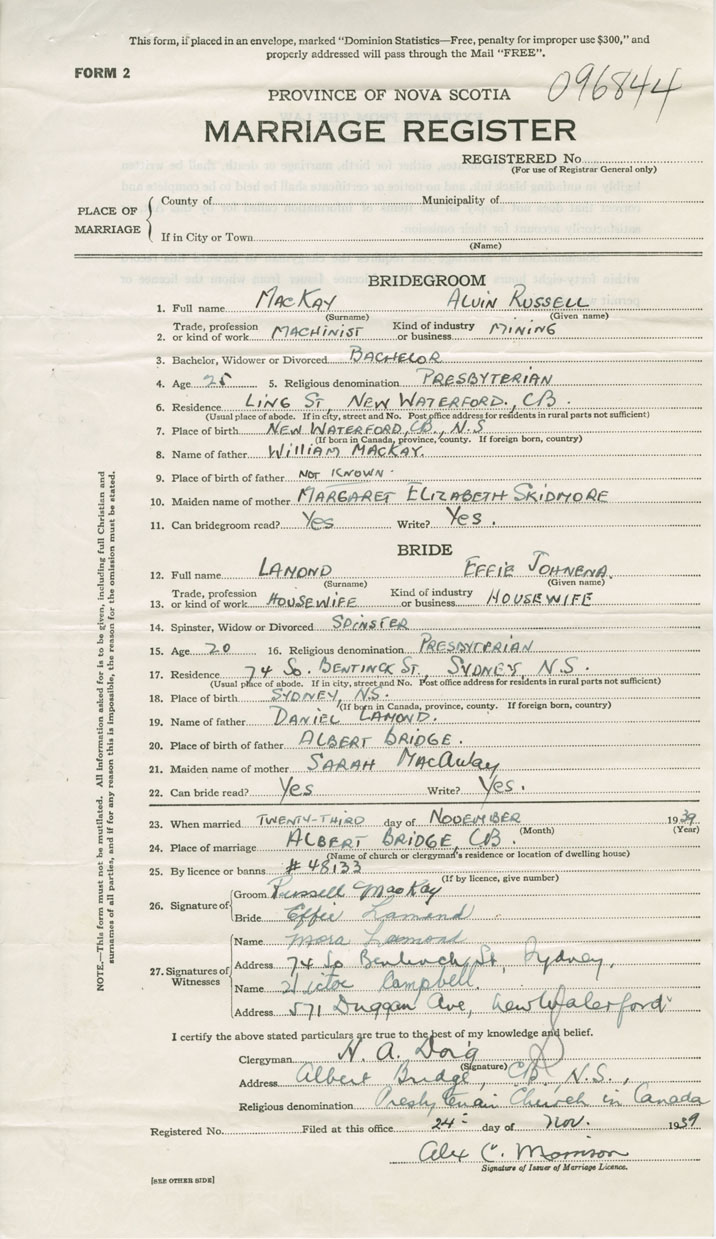 This form, if placed in an envelope, marked "Dominion Statistics—Free, penalty for improper use $300," and
properly addressed will pass through the Mail "FREE".
FORM 2
096844
PROVINCE OF NOVA SCOTIA
MARRIAGE REGISTER
REGISTERED No.
(For use of Registrar General only)
PLACE OF MARRIAGE
County of Municipality of
If in City or Town
(Name)
BRIDEGROOM
1. Full name MACKAY ALVIN RUSSELL
(Surname) (Given name)
2. Trade, profession or kind of work MACHINIST Kind of industry or business MINING
3. Bachelor, Widower or Divorced BACHELOR
4. Age 25 5. Religious denomination PRESBYTERIAN
6. Residence LING ST, NEW WATERFORD, CB.
(Usual place of abode. If in city, street and No. Post office address for residents in rural parts not sufficient)
7. Place of birth NEW WATERFORD, CB., N.S
(If born in Canada, province, county. If foreign born, country)
8. Name of father WILLIAM MACKAY.
9. Place of birth of father NOT KNOWN
10. Maiden name of mother MARGARET ELIZABETH SKIDMORE
11. Can bridegroom read? Yes Write? Yes.
BRIDE
12. Full name LAMOND EFFIE JOHNENA.
(Surname) (Given name)
13. Trade, profession or kind of work HOUSEWIFE Kind of industry or business HOUSEWIFE
14. Spinster, Widow or Divorced SPINSTER
15. Age 20 16. Religious denomination PRESBYTERIAN
17. Residence 74 So. BENTINCK ST., SYDNEY, N.S.
(Usual place of abode. If in city, street and No. Post office address for residents in rural parts not sufficient)
18. Place of birth SYDNEY, N.S.
(If born in Canada, province, county. If foreign born, country)
19. Name of father DANIEL LAMOND.
20. Place of birth of father ALBERT BRIDGE.
21. Maiden name of mother SARAH MacAulay
22. Can bride read? Yes Write? Yes.
23. When married TWENTY-THIRD day of NOVEMBER 1939
(Month) (Year)
24. Place of marriage ALBERT BRIDGE, CB.
(Name of church or clergyman's residence or location of dwelling house)
25. By licence or banns # 48133
(If by licence, give number)
26. Signature of
Groom Russell MacKay
Bride Effie Lamond
27. Signatures of Witnesses
Name Lamond
Address 74 So Bentinck St, Sydney,
Name Victor Campbell.
Address 571 Duggan Ave, New Waterford
I certify the above stated particulars are true to the best of my knowledge and belief.
Clergyman H. A. Doig
(Signature)
Address Albert Bridge, C.B. N.S.,
Religious denomination Presbyterian Church in Canada
Registered No. Filed at this office 24 day of Nov. 1939
Alex C. Morrison
Signature of Issuer of Marriage Licence.
[SEE OTHER SIDE]
NOTE.—This form must not be mutilated. All information asked for is to be given, including full Christian and
surnames of all parties, and if for any reason this is impossible, the reason for the omission must be stated.